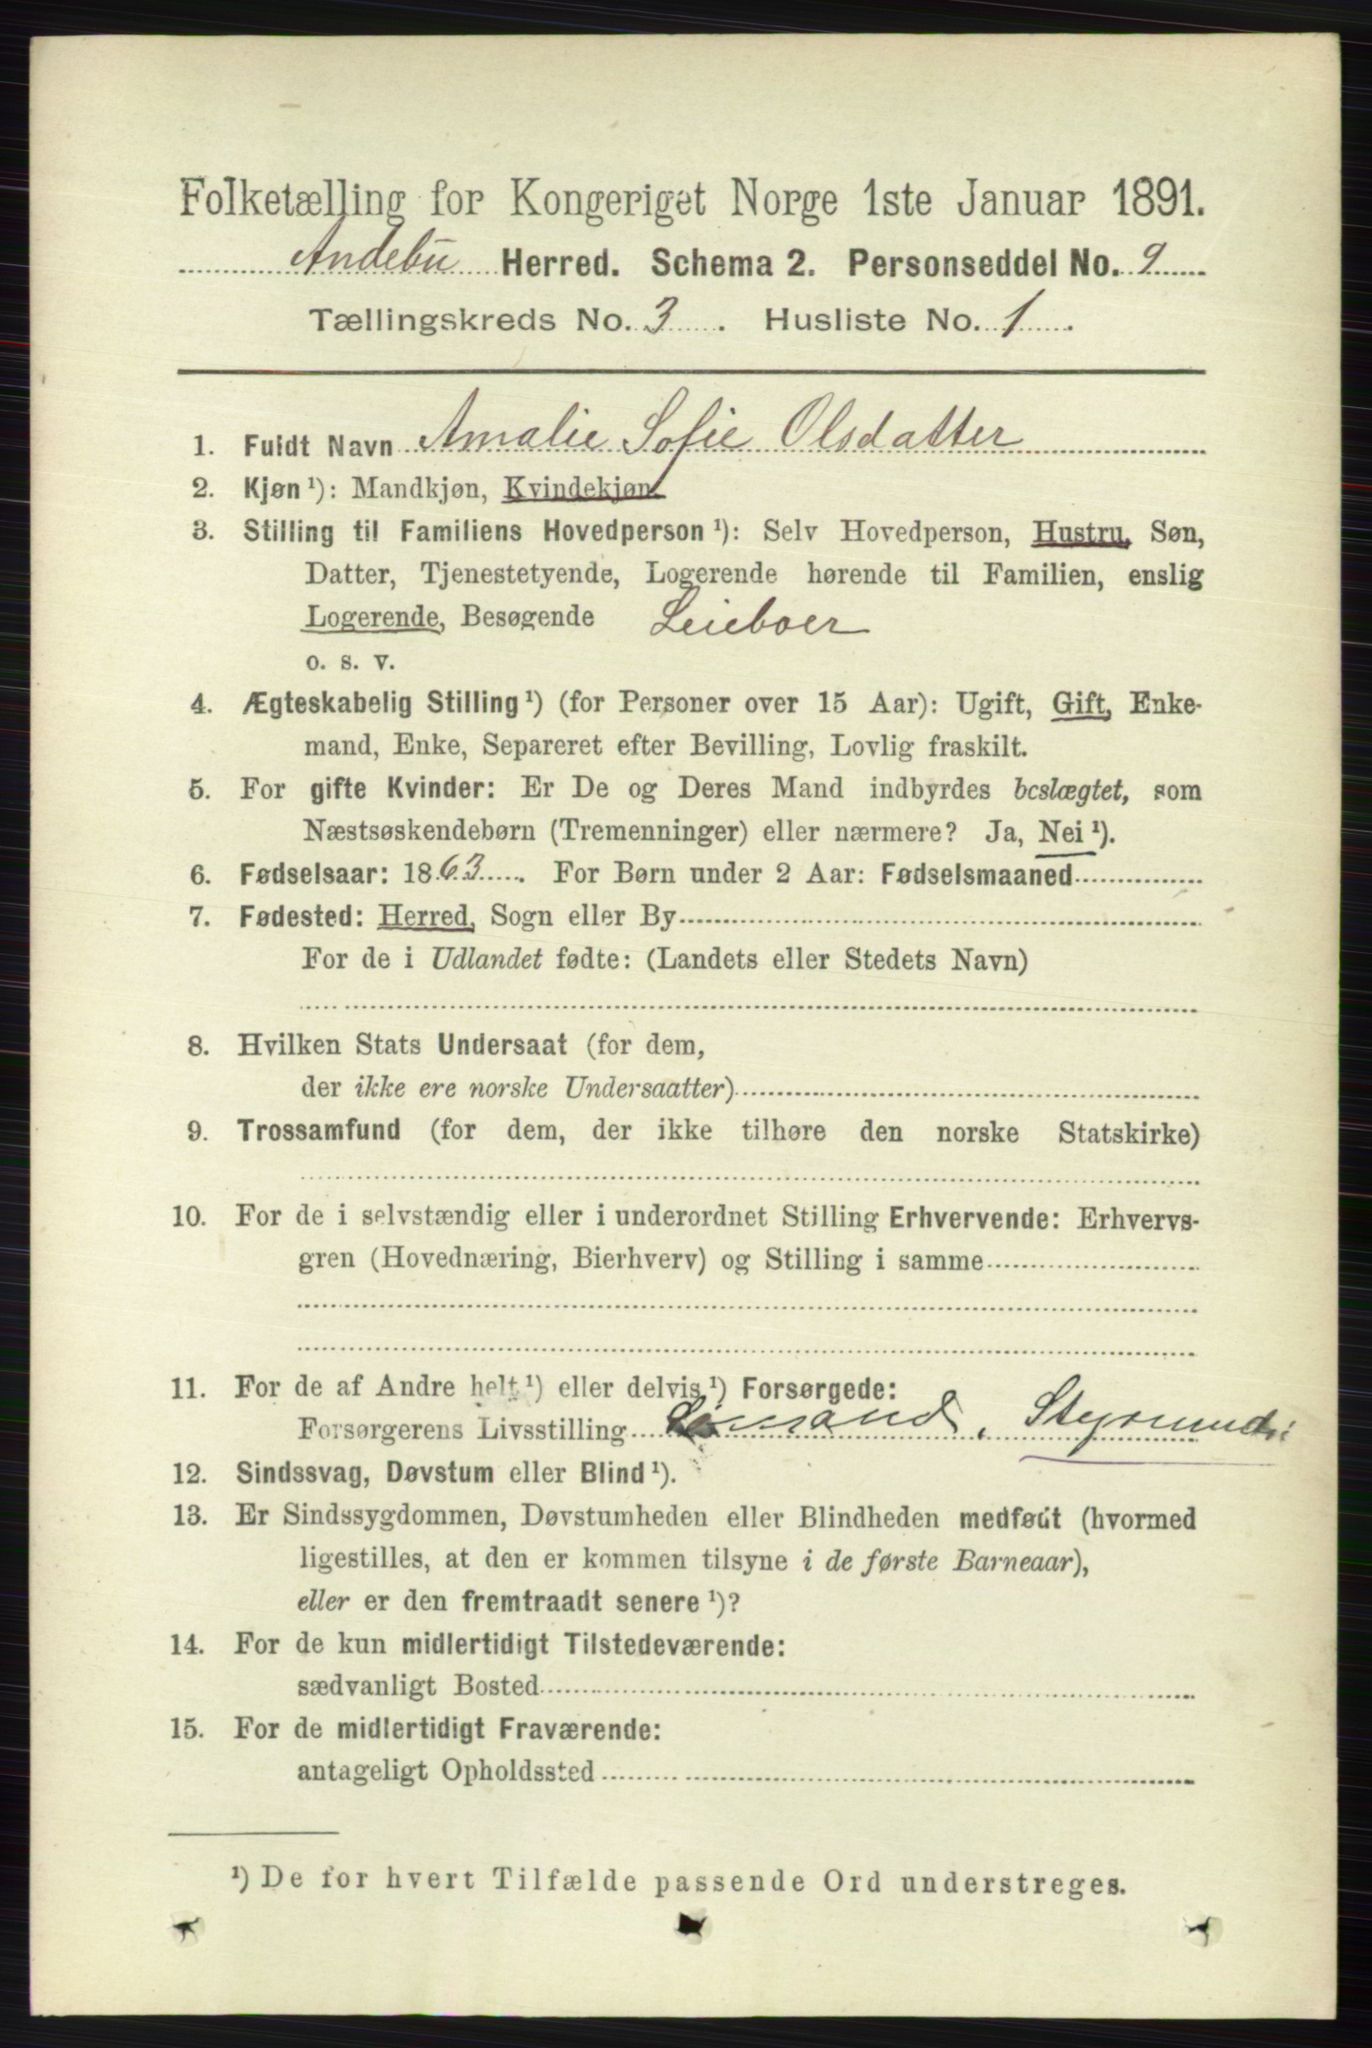 Folketælling for Kongeriget Norge 1ste Januar 1891.
Andebu Herred. Schema 2. Personseddel No. 9
Tællingskreds No. 3. Husliste No. 1.
1. Fuldt Navn Amalie Sofie Olsdatter
2. Kjøn ¹): Mandkjøn, Kvindekjøn
3. Stilling til Familiens Hovedperson ¹): Selv Hovedperson, Hustru, Søn,
Datter, Tjenestetyende, Logerende hørende til Familien, enslig
Logerende, Besøgende Leieboer
o. s. v.
4. Ægteskabelig Stilling ¹) (for Personer over 15 Aar): Ugift, Gift, Enke-
mand, Enke, Separeret efter Bevilling, Lovlig fraskilt.
5. For gifte Kvinder: Er De og Deres Mand indbyrdes beslægtet, som
Næstsøskendebørn (Tremenninger) eller nærmere? Ja, Nei ¹).
6. Fødselsaar: 1863. For Børn under 2 Aar: Fødselsmaaned
7. Fødested: Herred, Sogn eller By
For de i Udlandet fødte: (Landets eller Stedets Navn)
8. Hvilken Stats Undersaat (for dem,
der ikke ere norske Undersaatter)
9. Trossamfund (for dem, der ikke tilhøre den norske Statskirke)
10. For de i selvstændig eller i underordnet Stilling Erhvervende: Erhvervs-
gren (Hovednæring, Bierhverv) og Stilling i samme
11. For de af Andre helt ¹) eller delvis ¹) Forsørgede:
Forsørgerens Livsstilling Sømand, Styrmand
12. Sindssvag, Døvstum eller Blind ¹).
13. Er Sindssygdommen, Døvstumheden eller Blindheden medfødt (hvormed
ligestilles, at den er kommen tilsyne i de første Barneaar),
eller er den fremtraadt senere ¹)?
14. For de kun midlertidigt Tilstedeværende:
sædvanligt Bosted
15. For de midlertidigt Fraværende:
antageligt Opholdssted
¹) De for hvert Tilfælde passende Ord understreges.